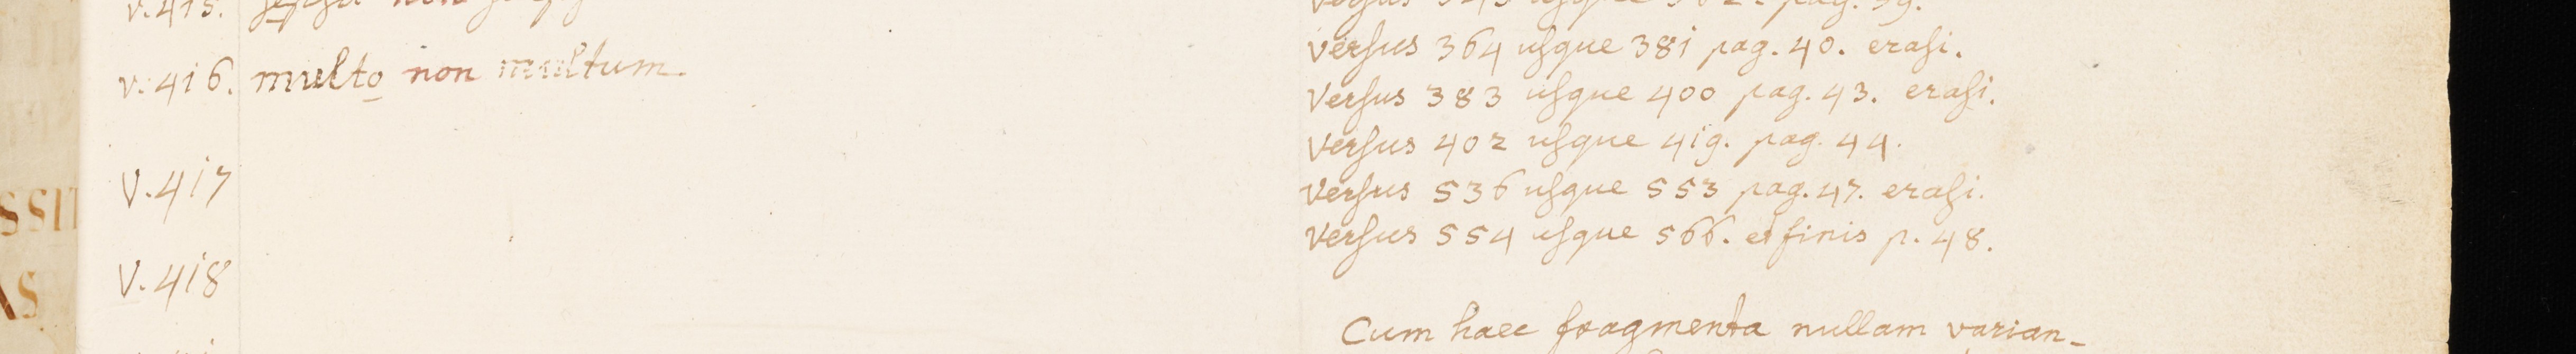 v. 415. non
v. 416. multo non multum.
V. 417
V. 418
SSIT
AS
Versus 364 usque 381 pag. 40. erasi.
Versus 383 usque 400 pag. 43. erasi.
Versus 402 usque 419. pag. 44.
Versus 536 usque 553 pag. 47. erasi.
Versus 554 usque 566. et finis p. 48.
Cum haec fragmenta nullam varian-